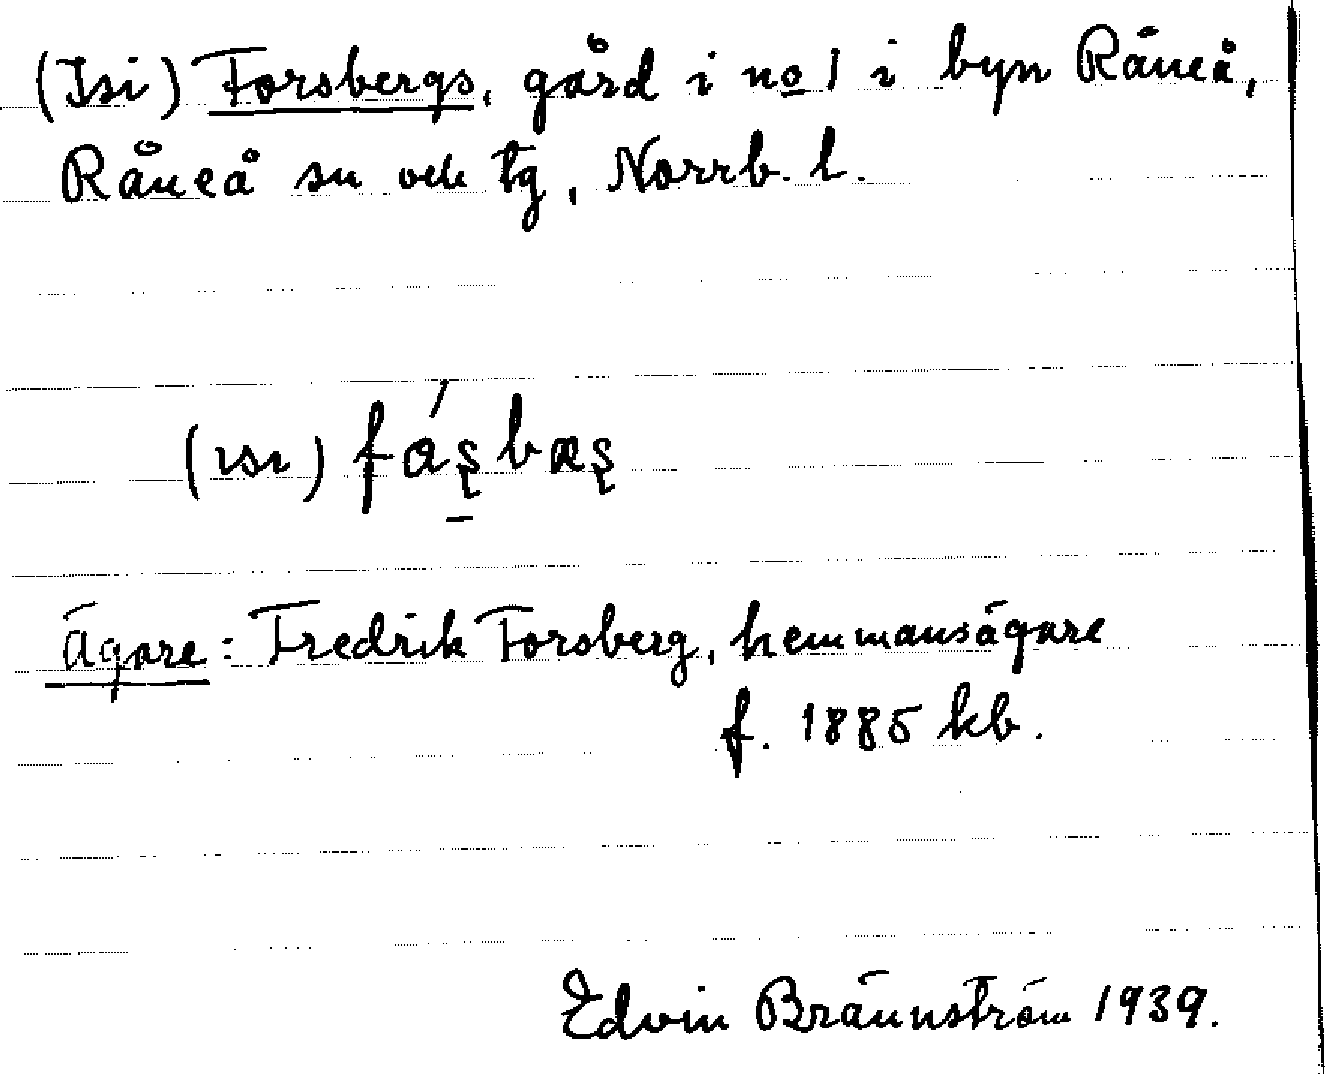 (Isi) Forsbergs, gård i no 1 i byn Råneå,
Råneå sn och tg, Norrb. l.
(ısı) fáşbæş
Ägare: Fredrik Forsberg, hemmansägare
f. 1885 kb.
Edvin Brännström 1939.